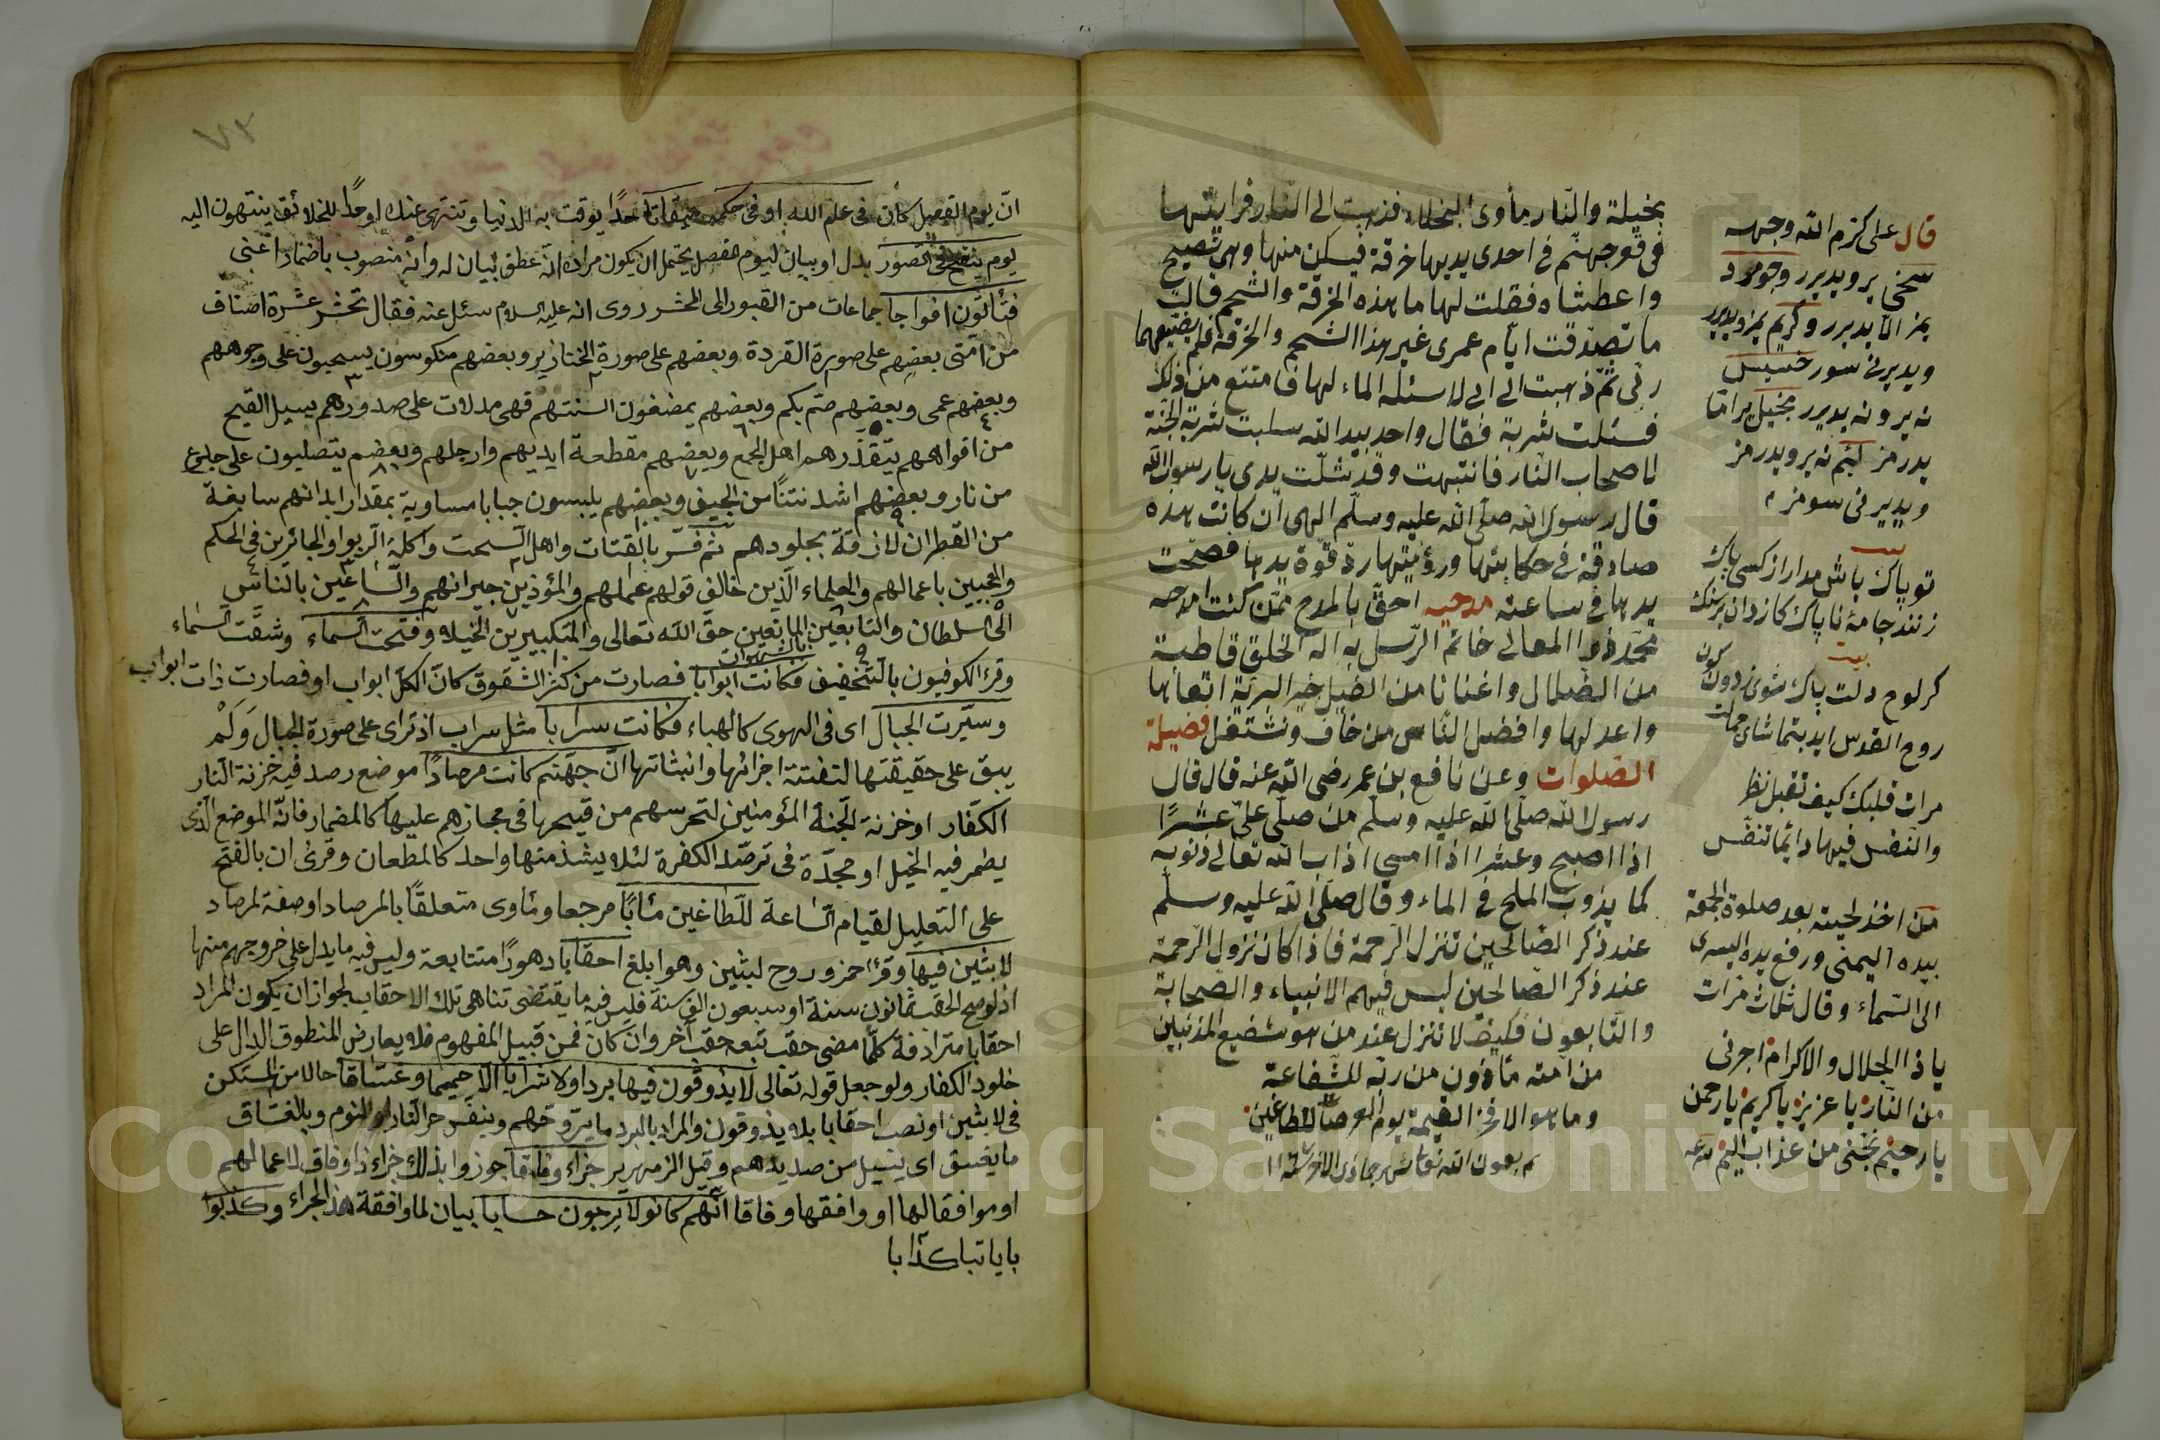 بخيلة والنار مأوى البخلاء فذهبت الى النار فرايتها
في قعر جهنم في احدى يديها خرقة فيسكن منها وهى تصيح
واعطشاه فقلت لها ما هذه الخرقة والشحم فقالت
ما تصدقت ايام عمرى غير هذا الشحم والخرقة فلم يضيعهما
ربى ثم ذهبت الى ابى لاسئله الماء لها فامتنع من ذلك
فسئلت شربة فقال واحد بيد الله سلبت شربة الجنة
لاصحاب النار فانتبهت وقد شلت يدى يا رسول الله
قال رسول الله صلى الله عليه وسلم الهى ان كانت هذه
صادقة في حكايتها ورؤيتها رد قوة يدها فصحت
يدها في ساعته مدحيه احق بالمدح ممن كنت امدحه
محمد ذو المعالى خاتم الرسل به اله الخلق قاطبة
من الضلال واغنانا من خير البرية اتقاها
واعدلها وافضل الناس من خاف ونشتغل فضيلة
الصلوات وعن نافع بن عمر رضى الله عنه قال قال
رسول الله صلى الله عليه وسلم من صلى على عشرا
اذا اصبح وعشرا اذا امسى اذاب الله تعالى ذنوبه
كما يذوب الملح في الماء وقال صلى الله عليه وسلم
عند ذكر الصالحين تنزل الرحمة فاذا كان نزول الرحمة
عند ذكر الصالحين ليس فيهم الانبياء والصحابة
والتابعون فكيف لا تنزل عند من هو شفيع المذنبين
من امته مأذون من ربه للشفاعة
وما هو الا فخر القيمة يوم العرصات للطاغين
تم بعون الله تعالى شهر جماذى الاخر
قال على كرم الله وجهه
سخى ير ويدير وجومرد
يمز الا يدير وكريم يمز ويدير
ويدير نى سور خسيس
نه ير ونه يدير بخيل ير اما
يدرمز لئيم نه ير ويدرمز
ويدير نى سومز
بيت
تو پاك باش مدار از كسى باك
زنند جامۀ ناپاك كازران بر سنك
بيت
كر لوح دلت پاك شوى
روح القدس ايد بتماشاى جمالت
مرات قلبك كيف تقبل نظر
والنفس فيها دائما تتنفس
من اخذ لحيته بعد صلوة الجمعة
بيده اليمنى ورفع يده اليسرى
الى السماء وقال ثلاث مرات
يا ذا الجلال والاكرام اجرنى
من النار يا عزيز يا كريم يا رحمن
يا رحيم نجنى من عذاب اليم
٧٣
ان يوم الفصل كان في علم الله او في حكمه ميقاتا حدا يوقت به الدنيا وتنتهى عنده او حدا للخلائق ينتهون اليه
يوم ينفخ في الصور بدل او بيان ليوم الفصل يحتمل ان يكون مراده انه عطف بيان له وانه منصوب باضمار اعنى
فتأتون افواجا جماعات من القبور الى المحشر روى انه عليه السلام سئل عنه فقال تحشر عشرة اصناف
من امتى بعضهم على صورة القردة وبعضهم على صورة الخنازير وبعضهم منكوسون يسحبون على وجوههم
وبعضهم عمى وبعضهم صم بكم وبعضهم يمضغون السنتهم فهى مدلات على صدورهم يسيل القيح
من افواههم يتقذرهم اهل الجمع وبعضهم مقطعة ايديهم وارجلهم وبعضهم يتصلبون على جذوع
من نار وبعضهم اشد نتنا من الجيف وبعضهم يلبسون جبابا مساوية بمقدار ابدانهم سابغة
من القطران لازقة بجلودهم ثم فسر بالقتات واهل السحت واكلة الربوا والجائرين في الحكم
والمعجبين باعمالهم والعلماء الذين خالف قولهم عملهم والمؤذين جيرانهم والساعين بالناس
الى السلطان والتابعين بالشهوات المانعين حق الله تعالى والمتكبرين الخيلاء وفتحت السماء وشقت السماء
وقرء الكوفيون بالتخفيف فكانت ابوابا فصارت من كثرة الشقوق كان الكل ابواب او فصارت ذات ابواب
وسيرت الجبال اى في الهوى كالهباء فكانت سرابا مثل سراب اذ ترى على صورة الجبال ولم
يبق على حقيقتها لتفتت اجزائها وانبثاثها ان جهنم كانت مرصادا موضع رصد فيه خزنة النار
الكفار او خزنة الجنة المؤمنين لتحرسهم من فيحها في مجازهم عليها كالمضمار فانه الموضع الذى
يضمر فيه الخيل او مجدة في ترصد الكفرة لئلا يشذ منها واحد كالمطعان وقرئ ان بالفتح
على التعليل لقيام الساعة للطاغين مئابا مرجعا ومأوى متعلقا بالمرصاد او صفة لمرصاد
لابثين فيها وقرء حمز وروح لبثين وهو ابلغ احقابا دهورا متتابعة وليس فيه ما يدل على خروجهم منها
اذ لو صح الحقب ثمانون سنة او سبعون الف سنة فليس فيه ما يقتضى تناهى تلك الاحقاب لجواز ان يكون المراد
احقابا مترادفة كلما مضى حقب تبعه حقب آخر وان كان فمن قبيل المفهوم فلا يعارض المنطوق الدال على
خلود الكفار ولو جعل قوله تعالى لا يذوقون فيها بردا ولا شرابا الا حميما وغساقا حالا من المستكن
في لابثين او نصب احقابا بلا يذوقون والمراد بالبرد ما يتروحهم وينفس حر النار او النوم وبالغساق
ما يغسق اى يسيل من صديدهم وقيل الزمهرير جزاء وفاقا جوزوا بذلك جزاء ذا وفاق لاعمالهم
او موافقا لها او وافقها وفاقا انهم كانوا لا يرجون حسابا بيان لما وافقة هذا الجزاء وكذبوا
باياتنا كذابا
Comg Sat University